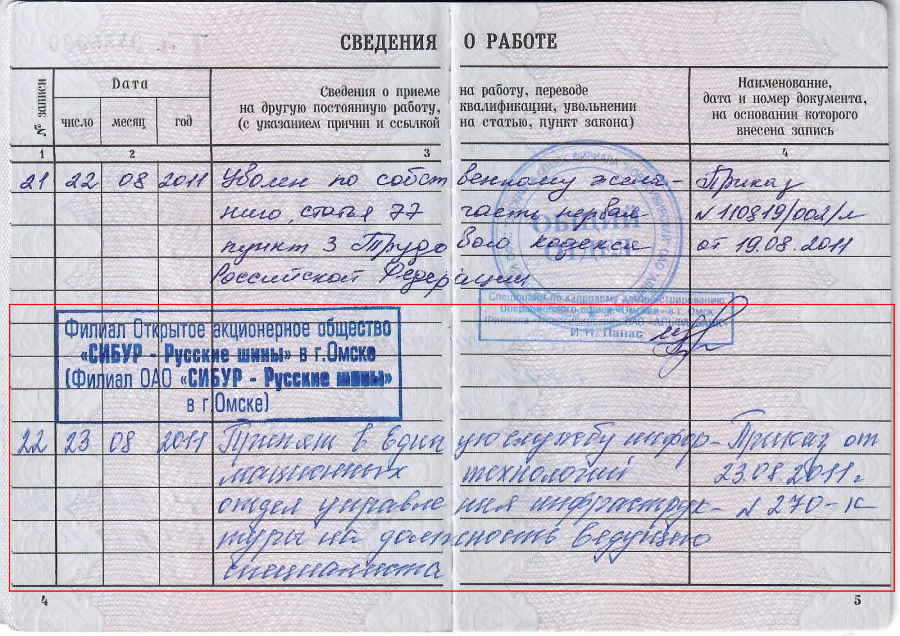 СВЕДЕНИЯ О РАБОТЕ
№ записи
Дата
число месяц год
Сведения о приеме на работу, переводе
на другую постоянную работу, квалификации, увольнении
(с указанием причин и ссылкой на статью, пункт закона)
Наименование,
дата и номер документа,
на основании которого
внесена запись
1 2 3 4
21 22 08 2011 Уволен по собственному жела- Приказ
нию, статья 77 часть первая N 110819/002/л
пункт 3 Трудового кодекса от 19.08.2011
Российской Федерации
ОБЩИЙ
ОТДЕЛ
Специалист по кадровому администрированию
Операционного офиса «Омский» в г. Омск
И.П. Панас
Филиал Открытое акционерное общество
«СИБУР - Русские шины» в г.Омске
(Филиал ОАО «СИБУР - Русские шины»
в г.Омске)
22 23 08 2011 Принят в Единую службу инфор- Приказ от
мационных технологий 23.08.2011г.
отдел управления инфраструк- N 270-к
туры на должность ведущего
специалиста
4 5